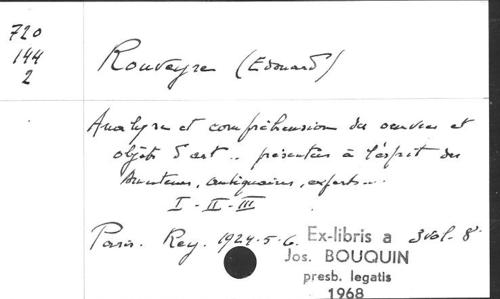 720
144
2
Rouveyre (Edouard)
Analyse et compréhension des oeuvres et
objets d'art .. présentées à l'esprit des
Amateurs, antiquaires, experts...
I - II - III
Paris. Rey. 1924-5-6. 3 vol. 8°
Ex-libris a
Jos. BOUQUIN
presb. legatis
1968